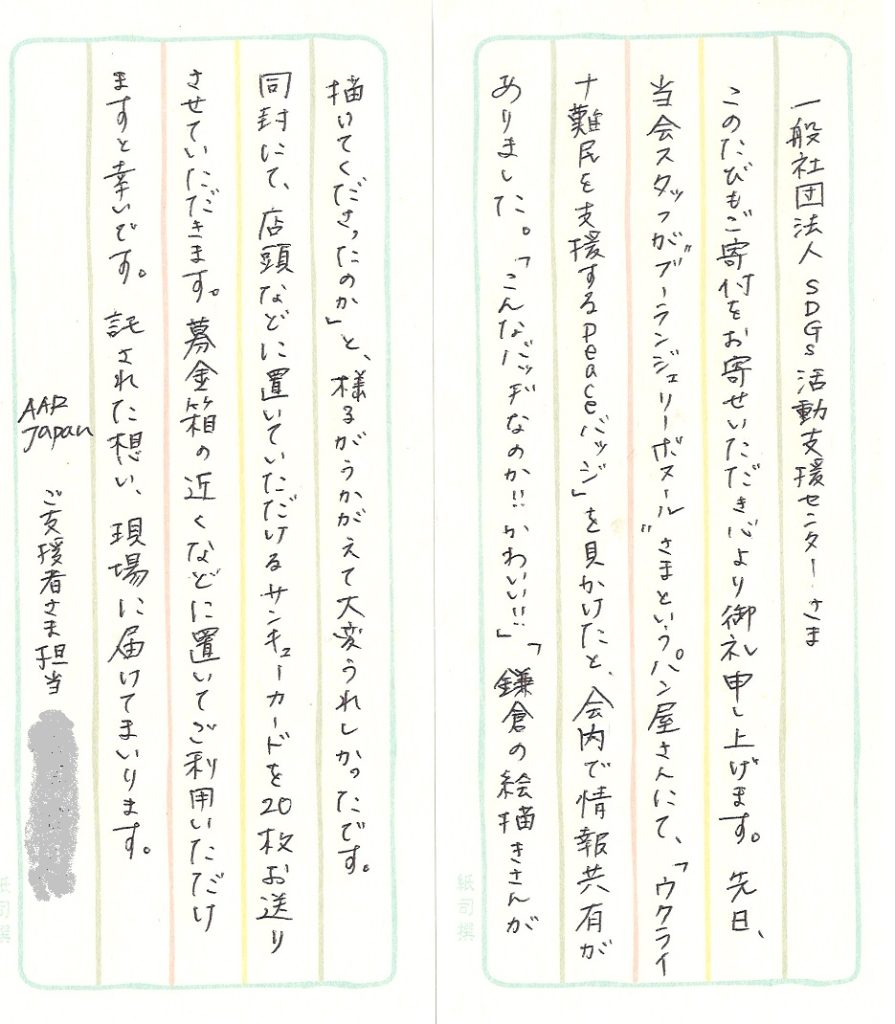 一般社団法人 SDGs活動支援センター さま
このたびもご寄付をお寄せいただき心より御礼申し上げます。先日、
当会スタッフが"ブーランジェリーボヌール"さまというパン屋さんにて、「ウクライ
ナ難民を支援するpeaceバッジ」を見かけたと、会内で情報共有が
ありました。「こんなバッヂなのか!!かわいい!!」「鎌倉の絵描きさんが
描いてくださったのか」と、様子がうかがえて大変うれしかったです。
同封にて、店頭などに置いていただけるサンキューカードを20枚お送り
させていただきます。募金箱の近くなどに置いてご利用いただけ
ますと幸いです。託された想い、現場に届けてまいります。
AAR
Japan
ご支援者さま担当
紙司撰
紙司撰